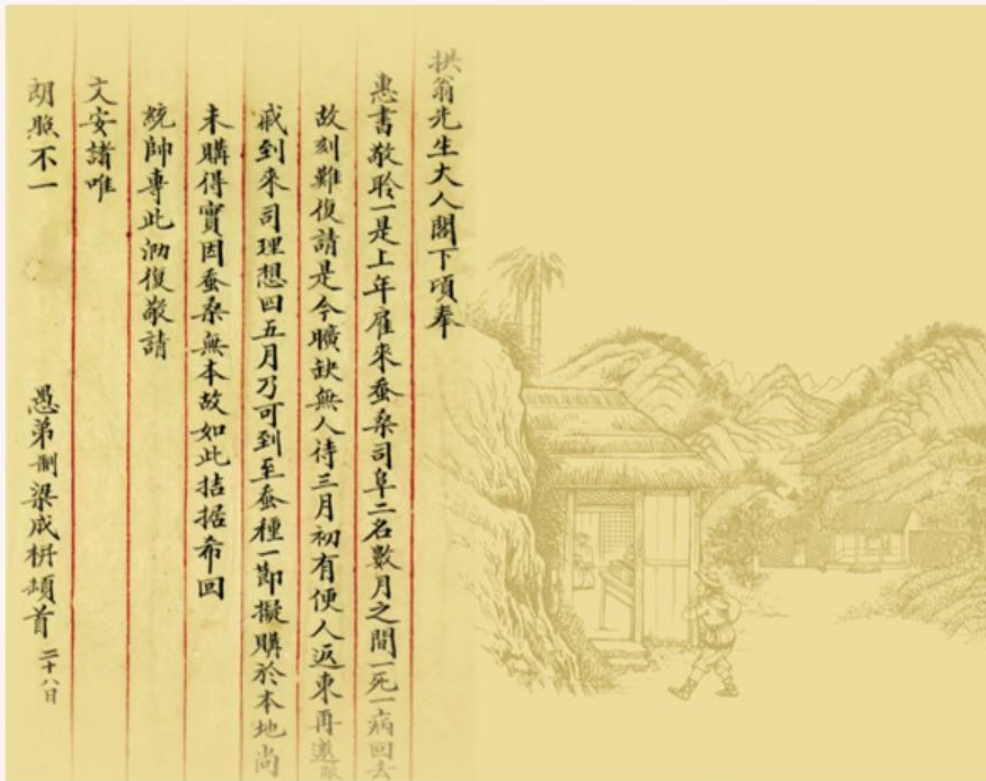 拱翁先生大人閣下頃奉
惠書敬聆一是上年雇來蚕桑司阜二名數月之間一死一病回去
故刻難復請是今曠缺無人待三月初有便人返東再邀
戚到來司理想四五月乃可到至蚕種一節擬購於本地尚
未購得實因蚕桑無本故如此拮据希回
統帥專此泐復敬請
文安諸唯
朗照不一
愚弟制梁成枬頓首 二十八日